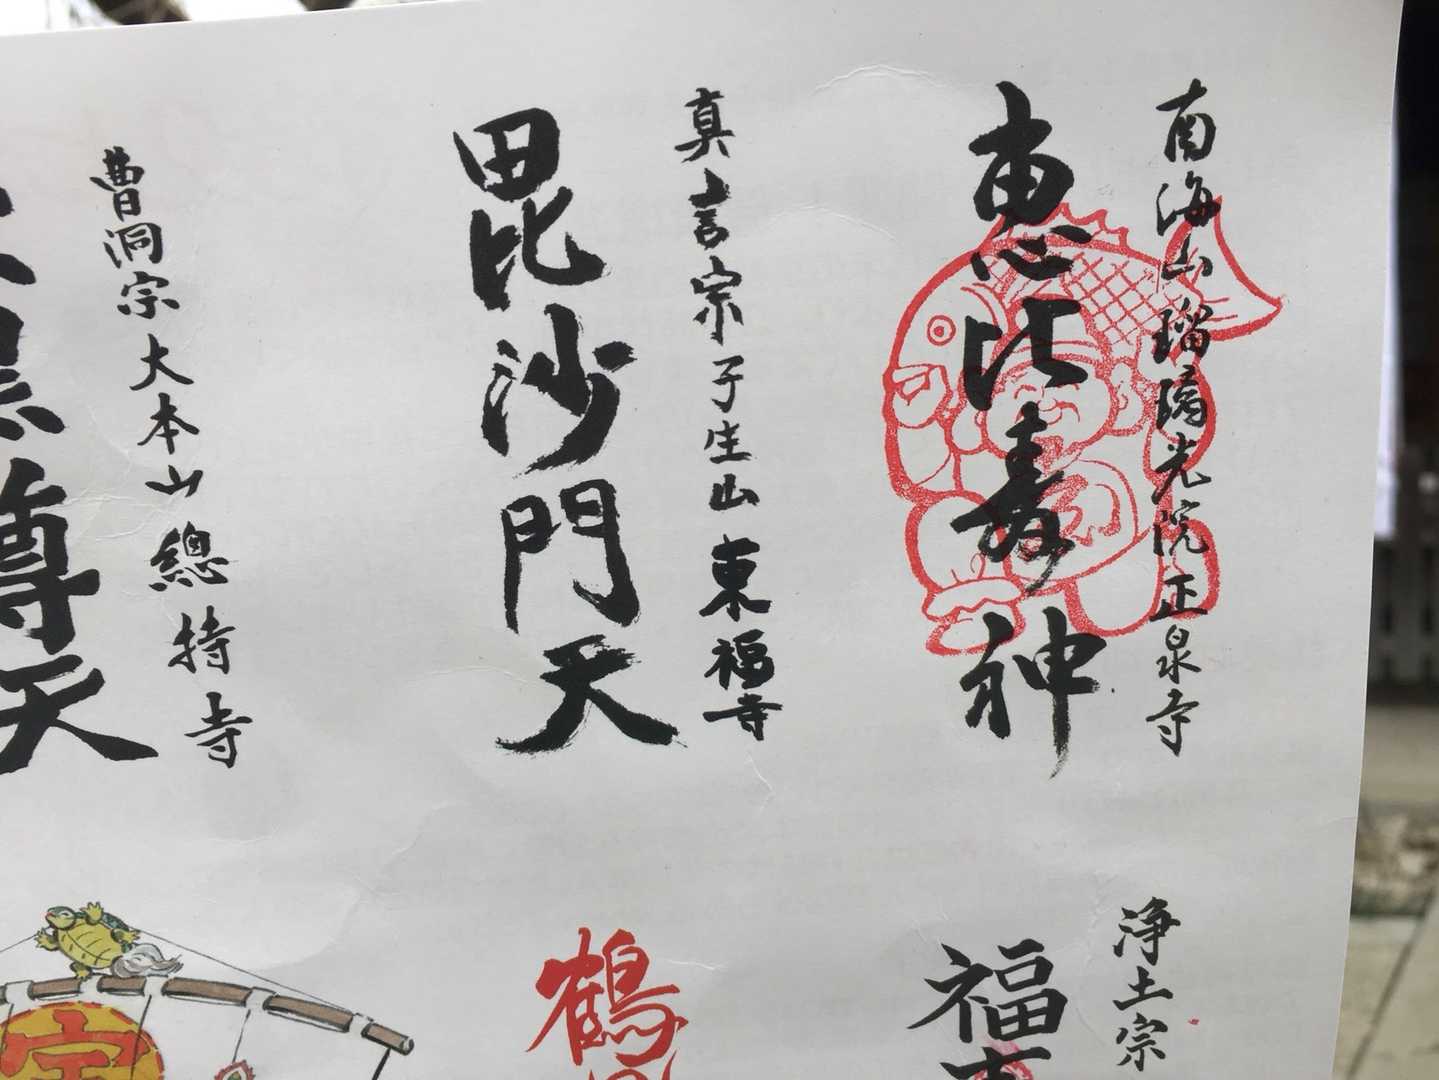 南海山瑠璃光院正泉寺
恵比寿神
真言宗子生山東福寺
毘沙門天
曹洞宗大本山總持寺
尊天
浄土宗
福
鶴
宝